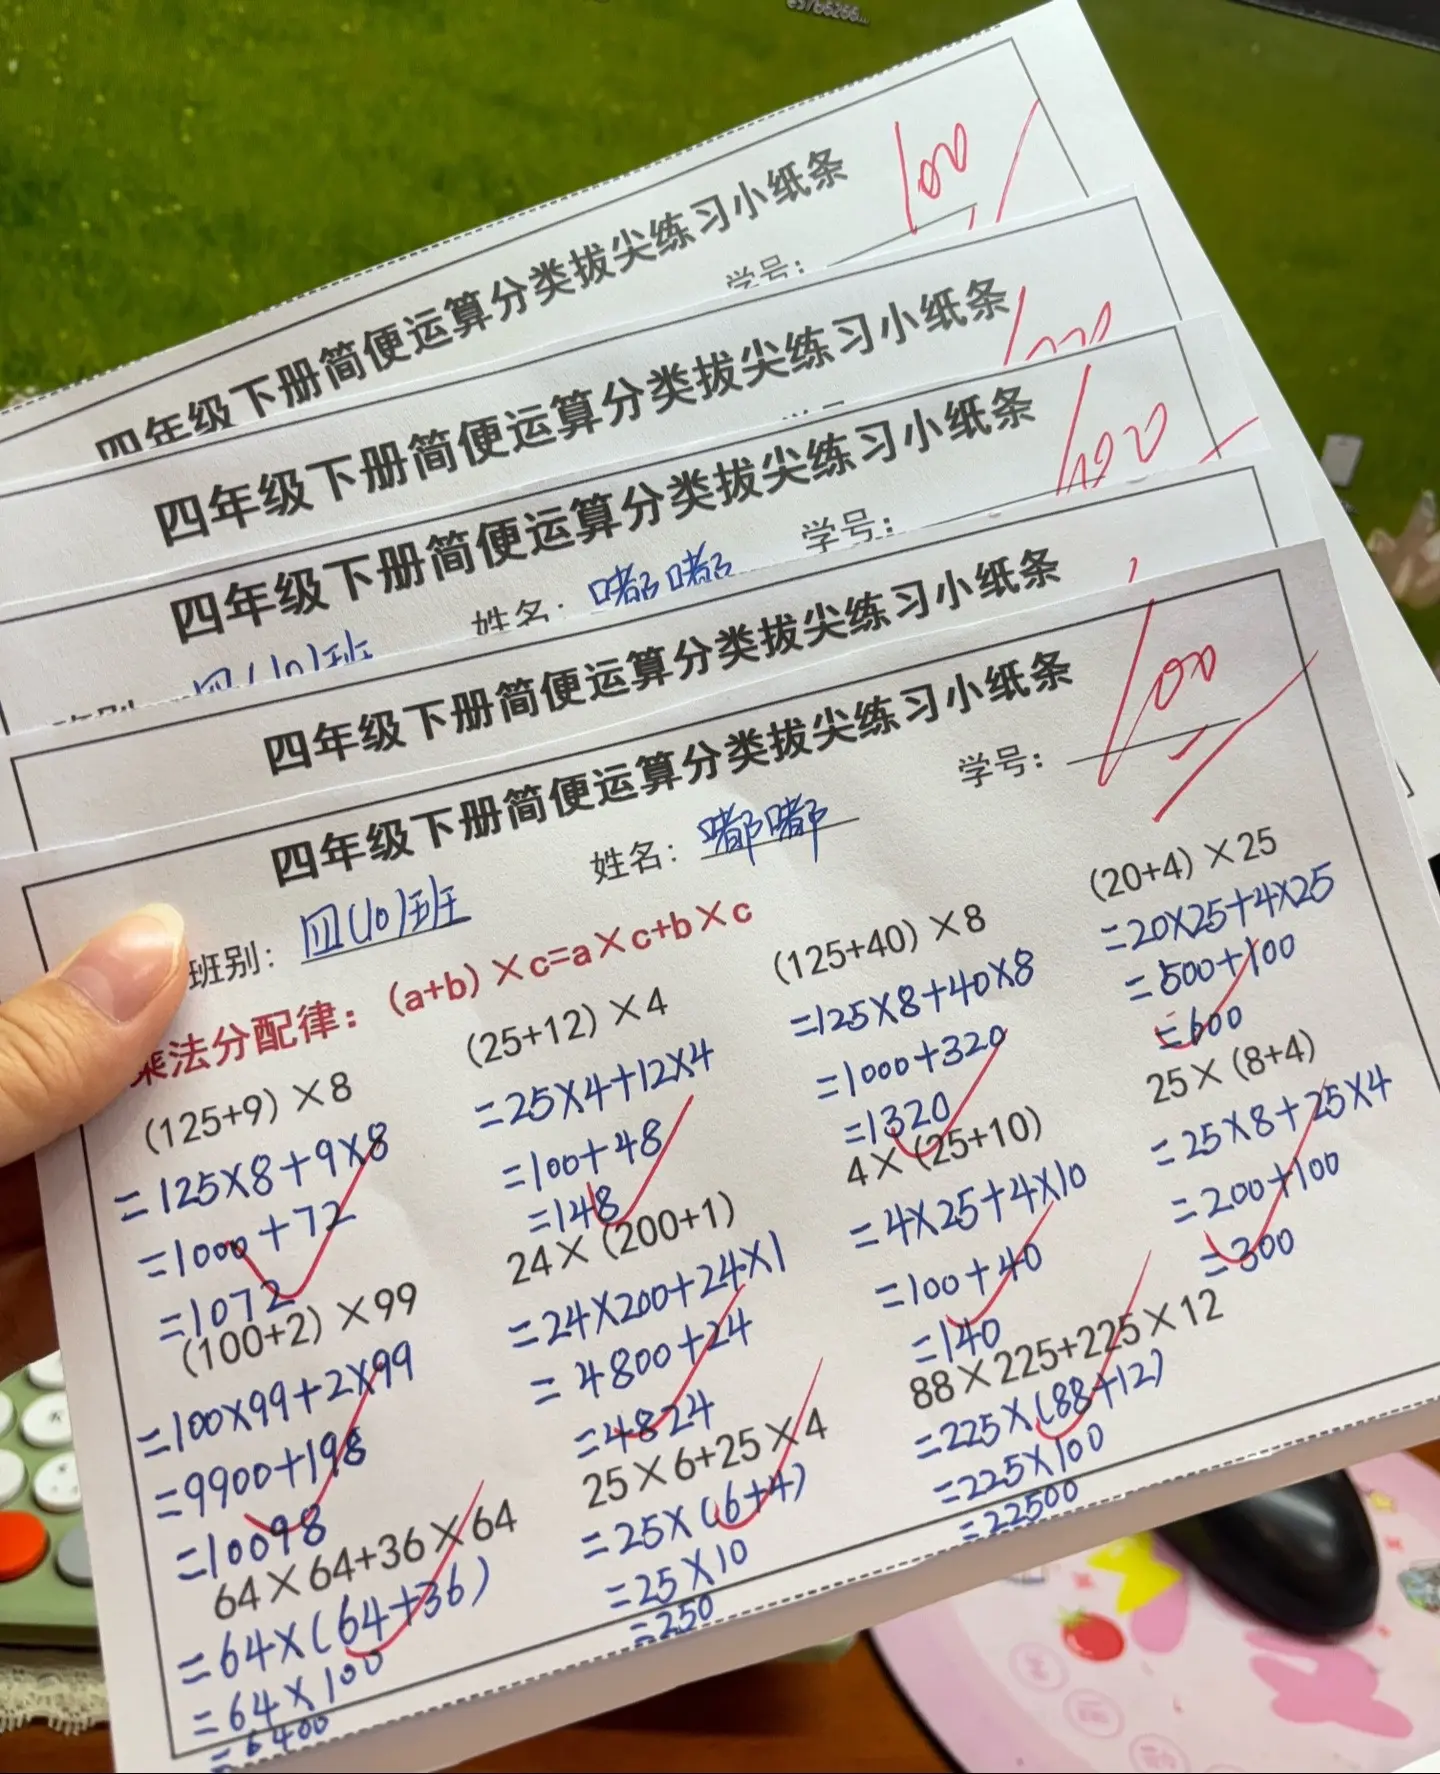 四年级下册简便运算分类拔尖练习小纸条
100
学号：
四年级下册简便运算分类拔尖练习小纸条
100
四年级下册简便运算分类拔尖练习小纸条
100
姓名：嘟嘟
学号：
四(10)班
四年级下册简便运算分类拔尖练习小纸条
四年级下册简便运算分类拔尖练习小纸条
100
班别：四(10)班
姓名：嘟嘟
学号：
乘法分配律：(a+b)×c=a×c+b×c
(125+9)×8
=125×8+9×8
=1000+72
=1072
(25+12)×4
=25×4+12×4
=100+48
=148
(125+40)×8
=125×8+40×8
=1000+320
=1320
(20+4)×25
=20×25+4×25
=500+100
=600
(100+2)×99
=100×99+2×99
=9900+198
=10098
24×(200+1)
=24×200+24×1
=4800+24
=4824
4×(25+10)
=4×25+4×10
=100+40
=140
25×(8+4)
=25×8+25×4
=200+100
=300
64×64+36×64
=64×(64+36)
=64×100
=6400
25×6+25×4
=25×(6+4)
=25×10
=250
88×225+225×12
=225×(88+12)
=225×100
=22500